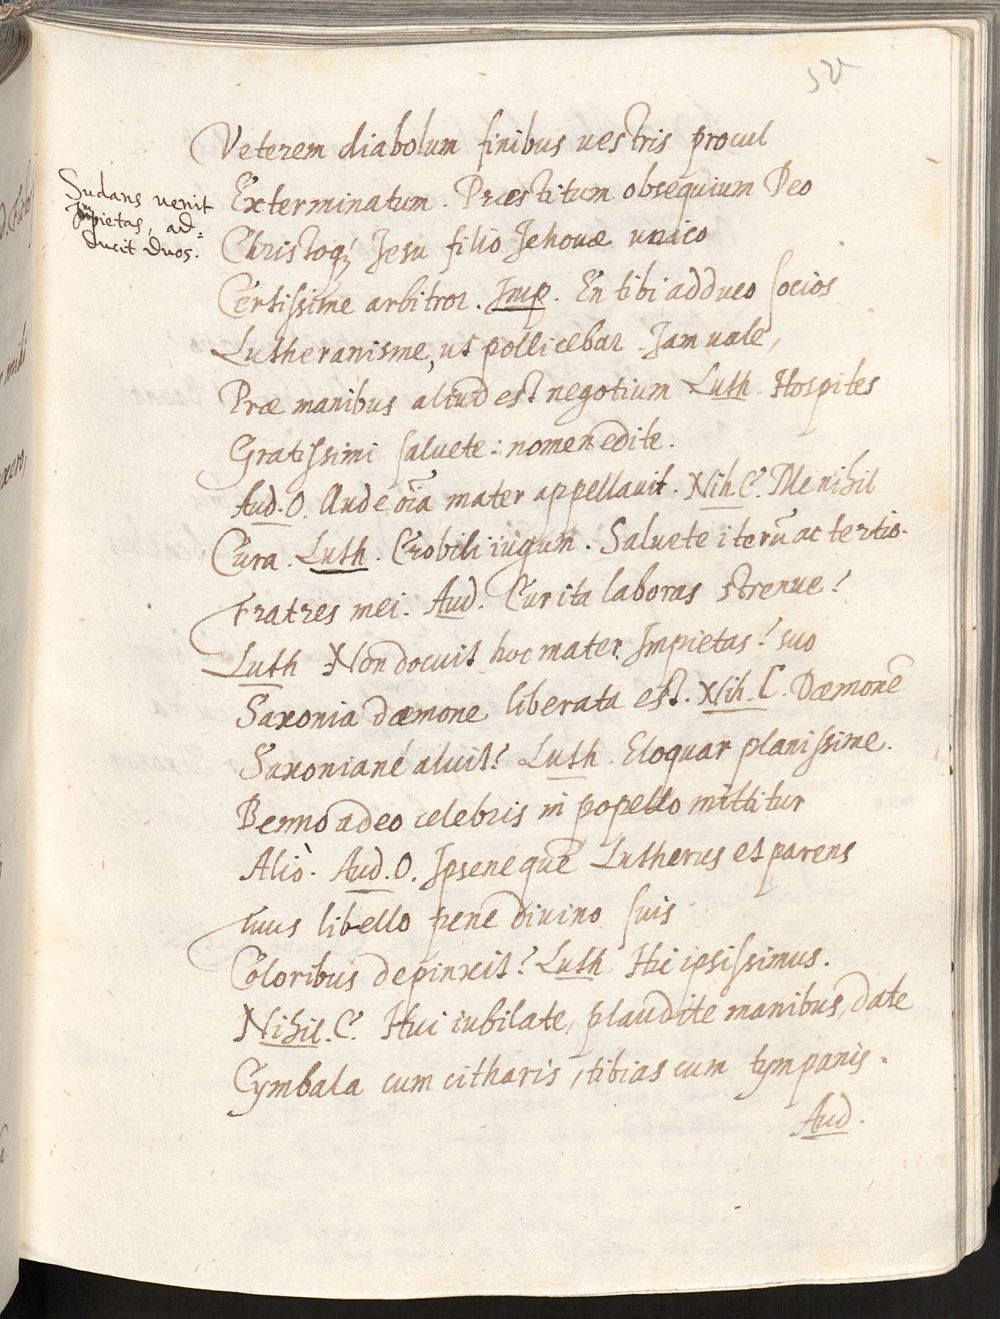 Veterem diabolum finibus uestris procul
Sudans venit
Impietas, ad=
ducit duos.
Exterminatum. Præstitum obsequium Deo
Christoq₃ Jesu filio Jehouæ unico
Certissime arbitror. Imp. En tibi adduco socios
Lutheranisme, ut pollicebar. Jam uale,
Præ manibus aliud est negotium Luth. Hospites
Gratissimi saluete: nomen edite.
Aud. O. Aude oīa mater appellauit. Nih. C. Me nihil
Cura. Luth. Crobili iugum. Saluete iterū ac tertio.
Fratres mei. Aud. Cur ita laboras strenue?
Luth Non docuit hoc mater Impietas? suo
Saxonia dæmone liberata est. Nih. C. Dæmonē
Saxoniané aluit? Luth. Eloquar planissime.
Benno adeo celebris in popello mittitur
Aliò. Aud. O. Ipsene quē Lutherus et parens
tuus libello penè diuino suis
Coloribus depinxit? Luth Hic ipsissimus.
Nihil. C. Hui iubilate, plaudite manibus, date
Cymbala cum citharis, tibias cum tympanis.
Aud.